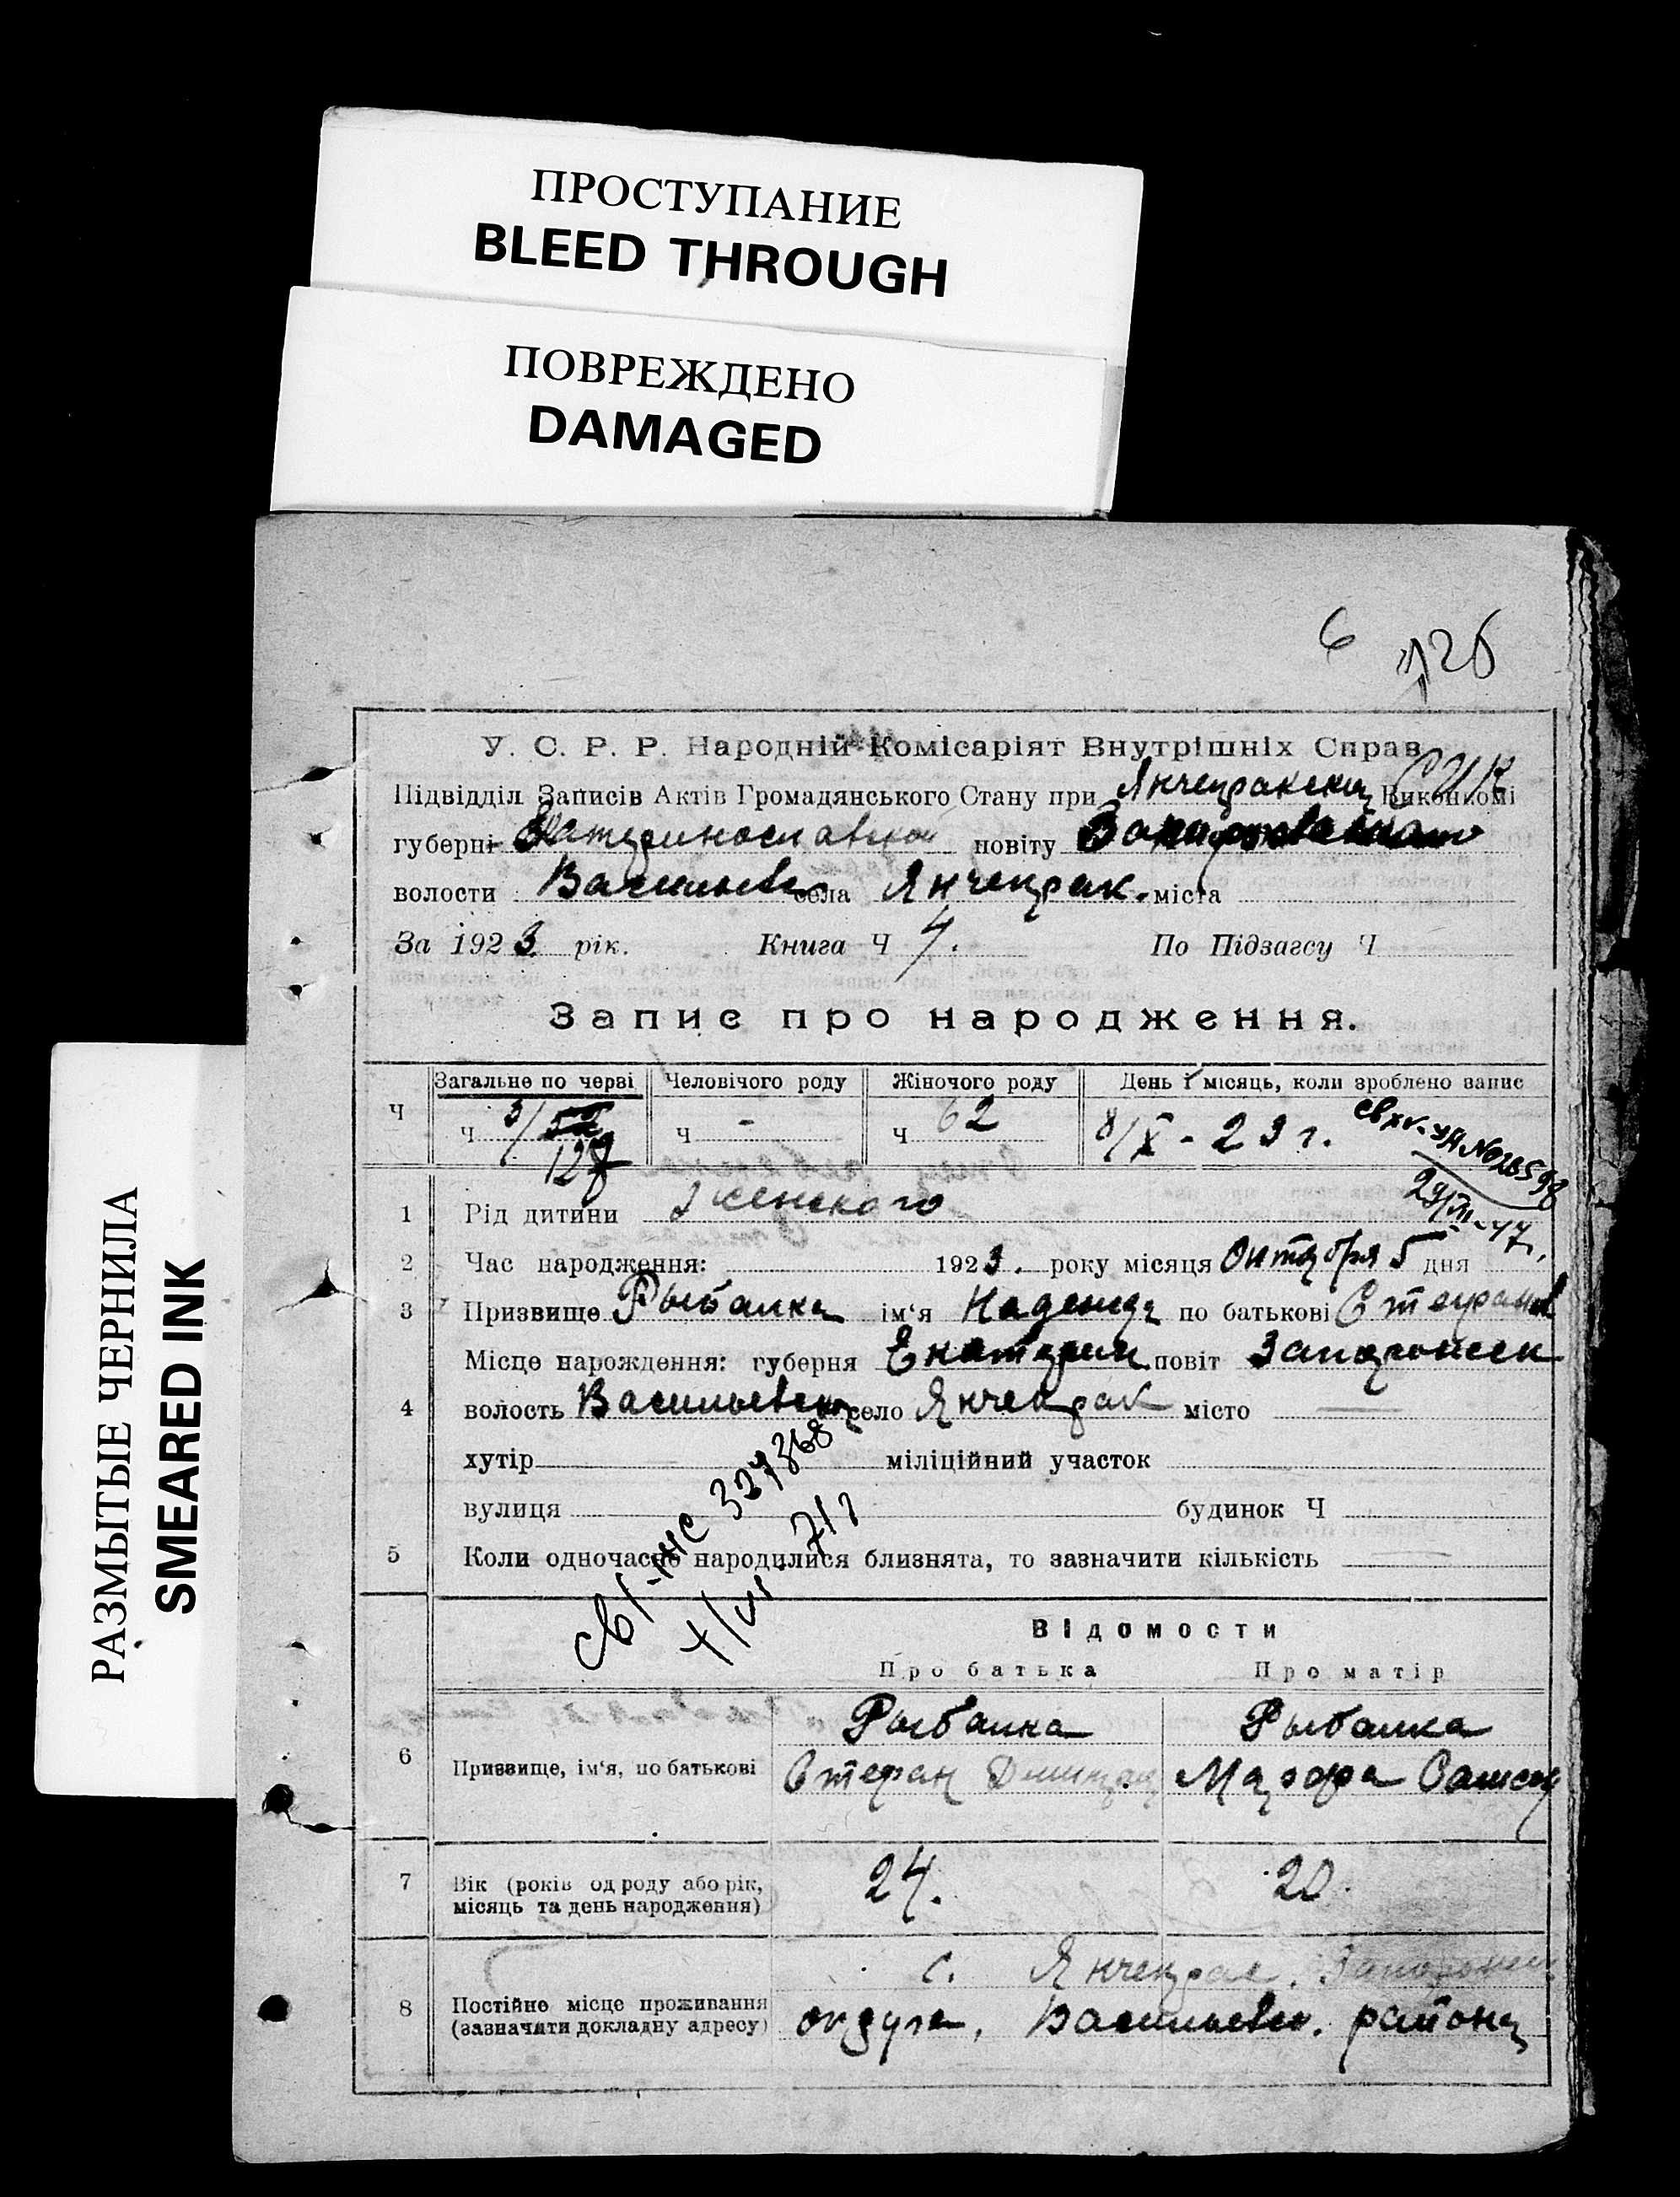 ПРОСТУПАНИЕ
BLEED THROUGH
ПОВРЕЖДЕНО
DAMAGED
РАЗМЫТЫЕ ЧЕРНИЛА
SMEARED INK
6 126
У. С. Р. Р. Народній Комісаріят Внутрішніх Справ
Підвідділ Записів Актів Громадянського Стану при Янчекракском СИК Виконкомі
губерні Екатеринославской повіту
волости Васильевск села Янчекрак. міста
За 1923. рік. Книга Ч 4. По Підзагсу Ч
Запис про народження.
Загальне по черві Человічого роду Жіночого роду День і місяць, коли зроблено запис
Ч Ч 3/ Ч - Ч 62 8/X - 23 г.
127
29/VII-47.
1 Рід дитини Женского
2 Час народження: 1923. року місяця Октября 5 дня
3 Призвище Рыбалка ім'я Надежда по батькові Степанов
Місце нарождення: губерня Екатерин повіт Запорожск
4 волость Васильевск село Янчекрак місто
хутір міліційний участок
вулиця будинок Ч
5 Коли одночасно народилися близнята, то зазначити кількість
Відомости
Про батька Про матір
6 Призвище, ім'я, по батькові
Рыбалка Рыбалка
Стефан
7 Вік (років од роду або рік, місяць та день народження) 24. 20.
с. Янчекрак, Запорожск.
8 Постійне місце проживання (зазначити докладну адресу)
округа, Васильевск. района